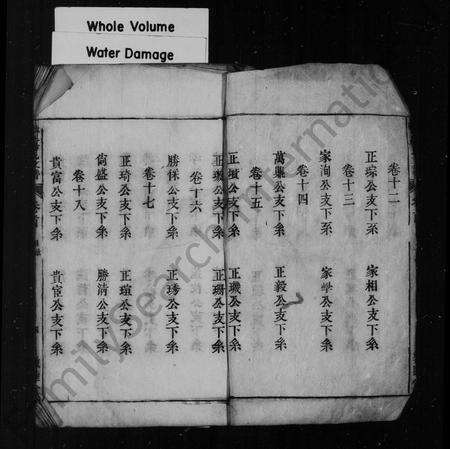 Whole Volume
Water Damage
卷十二
正琮公支下系 家相公支下系
卷十三
家洵公支下系 家學公支下系
卷十四
萬鎰公支下系 正毅公支下系
卷十五
正璸公支下系 正璣公支下系
正瓚公支下系 正珊公支下系
卷十六
勝保公支下系 正琇公支下系
卷十七
正琦公支下系 正瑄公支下系
尙盛公支下系 勝清公支下系
卷十八
貴富公支下系 貴宦公支下系
FamilySearch International